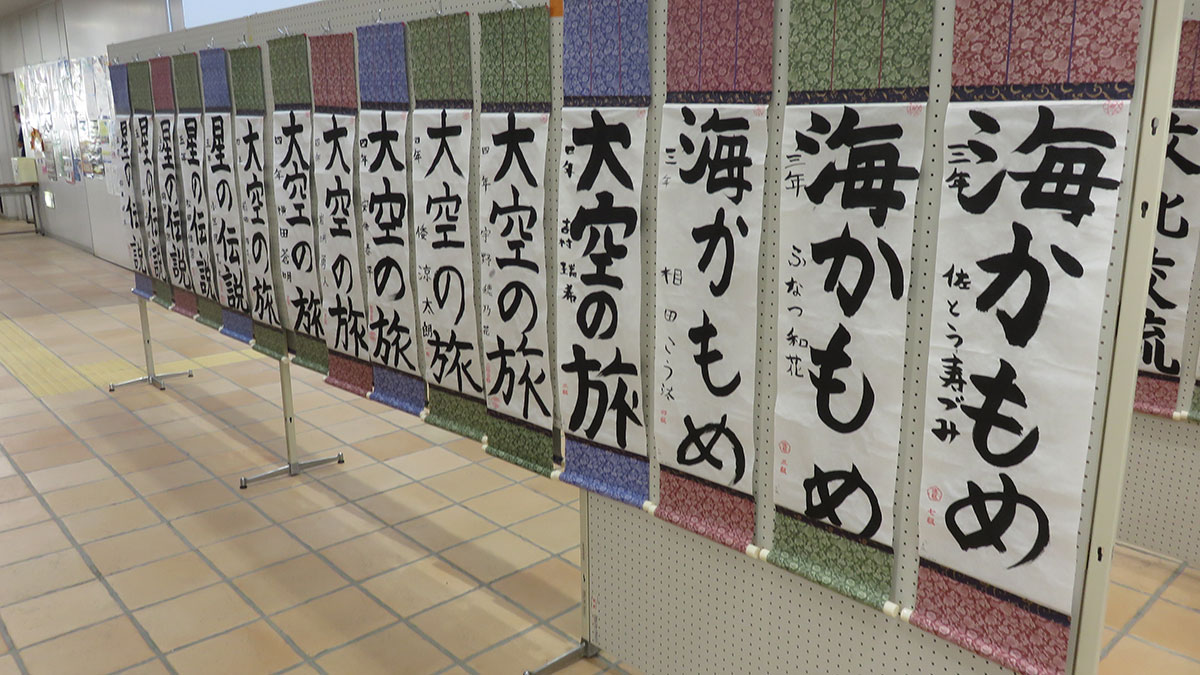 文化交流
海かもめ
三年 佐とう寿づみ
七級
海かもめ
三年 ふなつ和花
海かもめ
三年 相田こう
大空の旅
四年 吉村瑞希
大空の旅
四年 宇野穂乃花
大空の旅
四年 俵涼太朗
大空の旅
四年
大空の旅
大空の旅
大空の旅
星の伝説
星の伝説
星の伝説
星の伝説
星の伝説